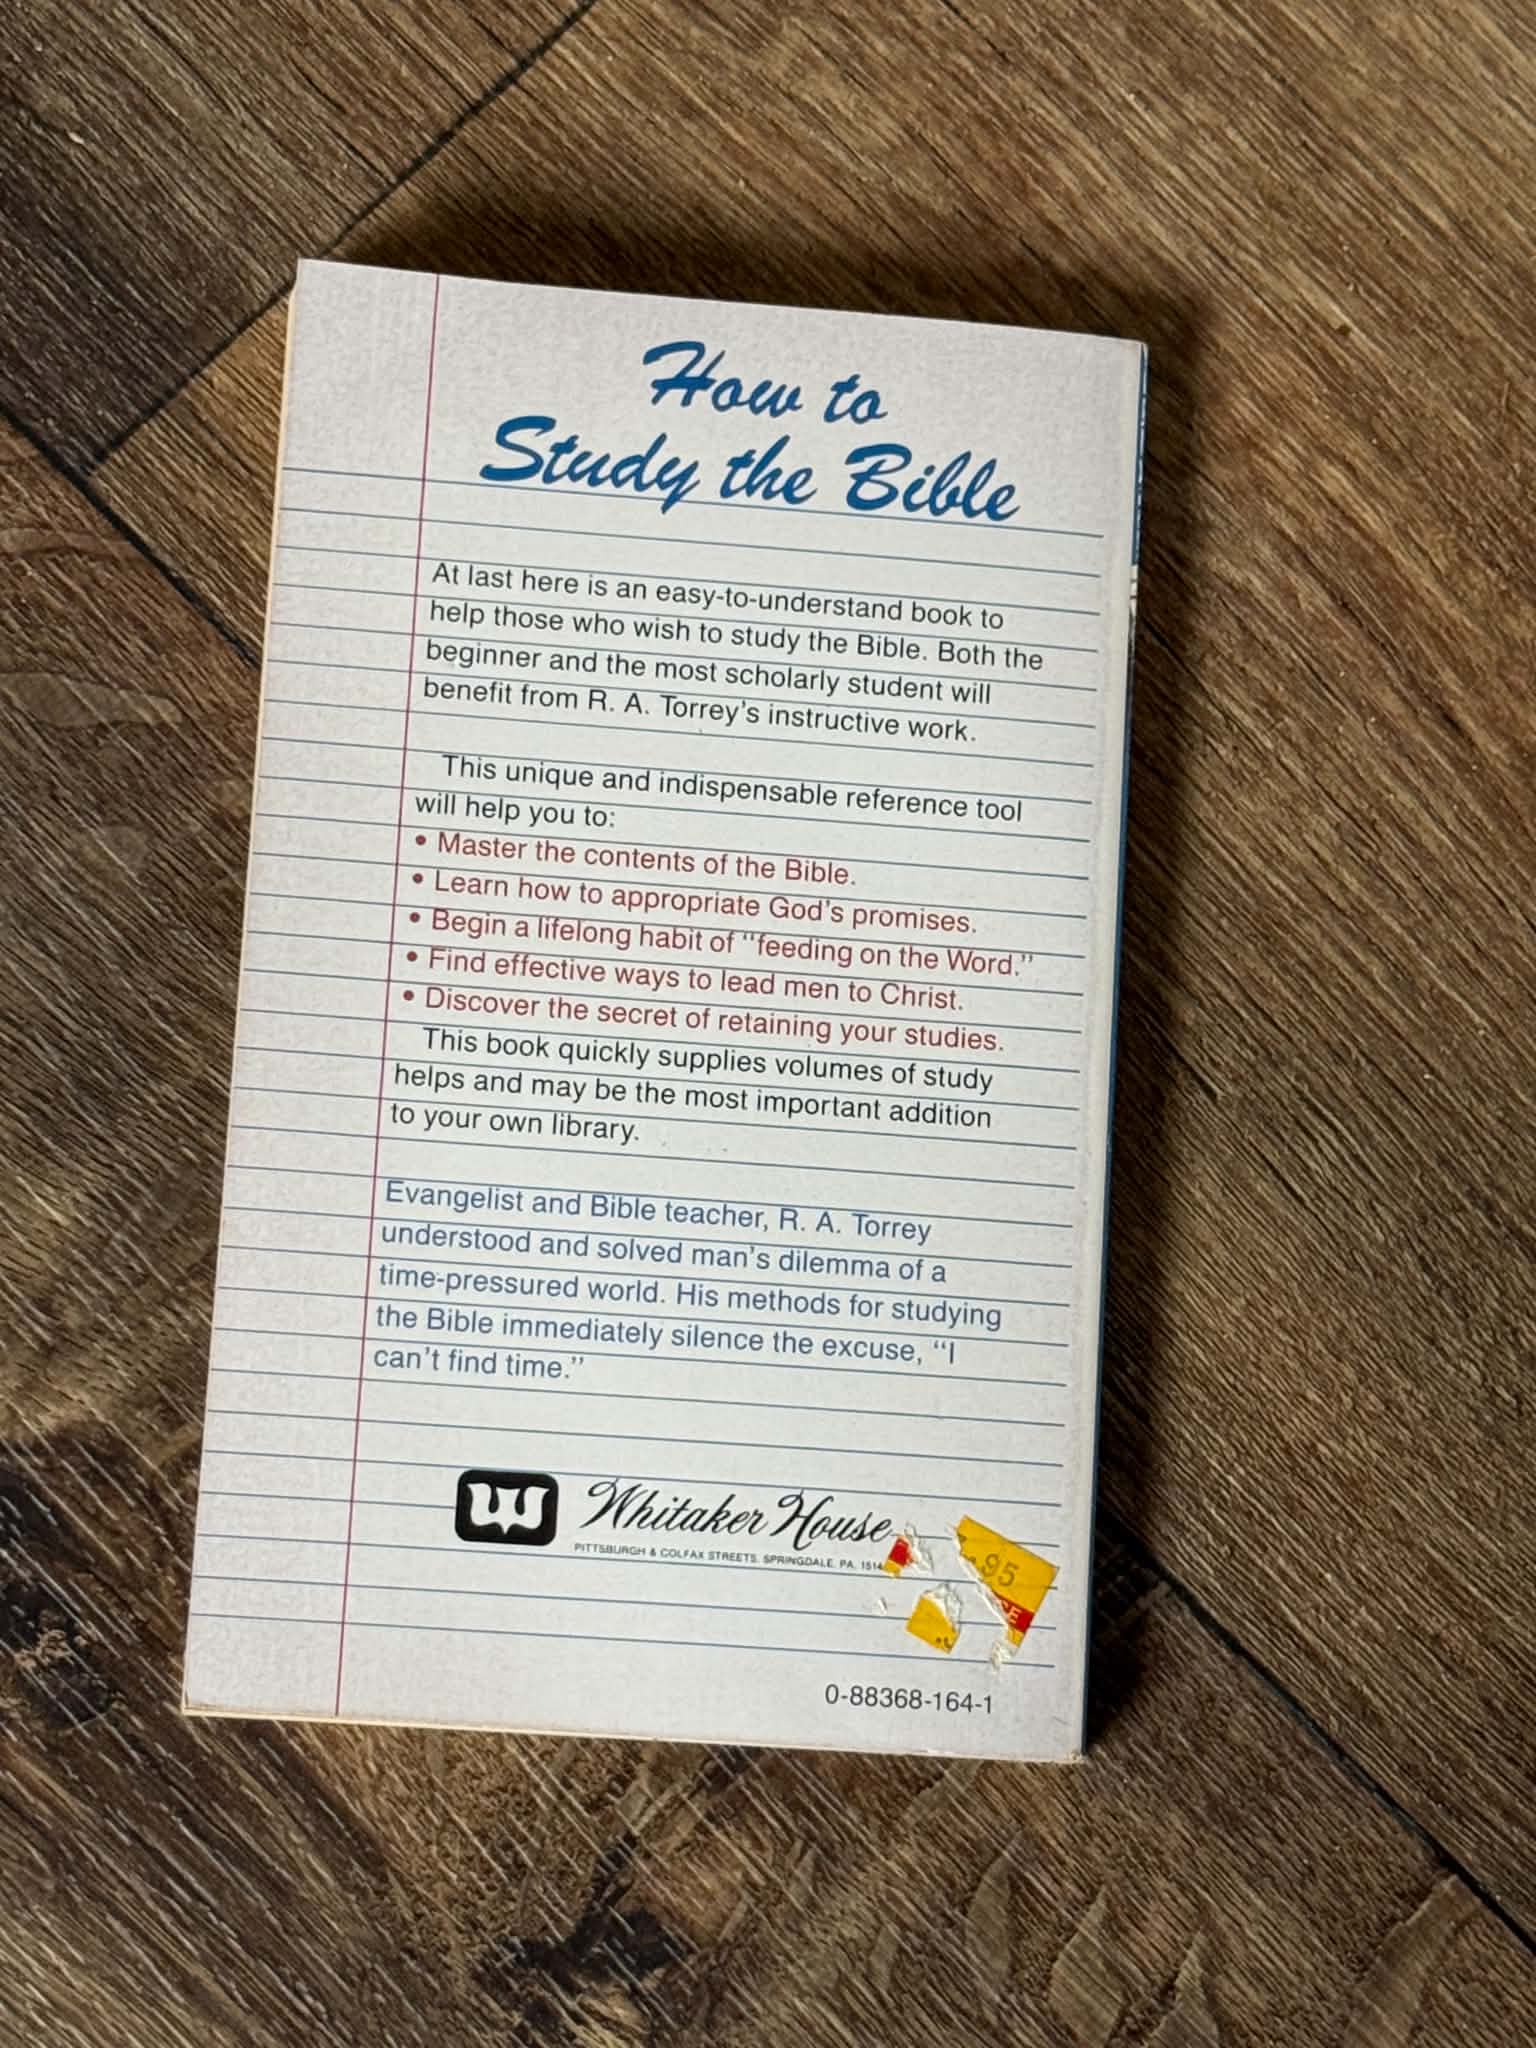 How to
Study the Bible
At last here is an easy-to-understand book to
help those who wish to study the Bible. Both the
beginner and the most scholarly student will
benefit from R. A. Torrey's instructive work.
This unique and indispensable reference tool
will help you to:
• Master the contents of the Bible.
• Learn how to appropriate God's promises.
• Begin a lifelong habit of "feeding on the Word."
• Find effective ways to lead men to Christ.
• Discover the secret of retaining your studies.
This book quickly supplies volumes of study
helps and may be the most important addition
to your own library.
Evangelist and Bible teacher, R. A. Torrey
understood and solved man's dilemma of a
time-pressured world. His methods for studying
the Bible immediately silence the excuse, "I
can't find time."
W Whitaker House
PITTSBURGH & COLFAX STREETS, SPRINGDALE, PA. 1514
95
0-88368-164-1